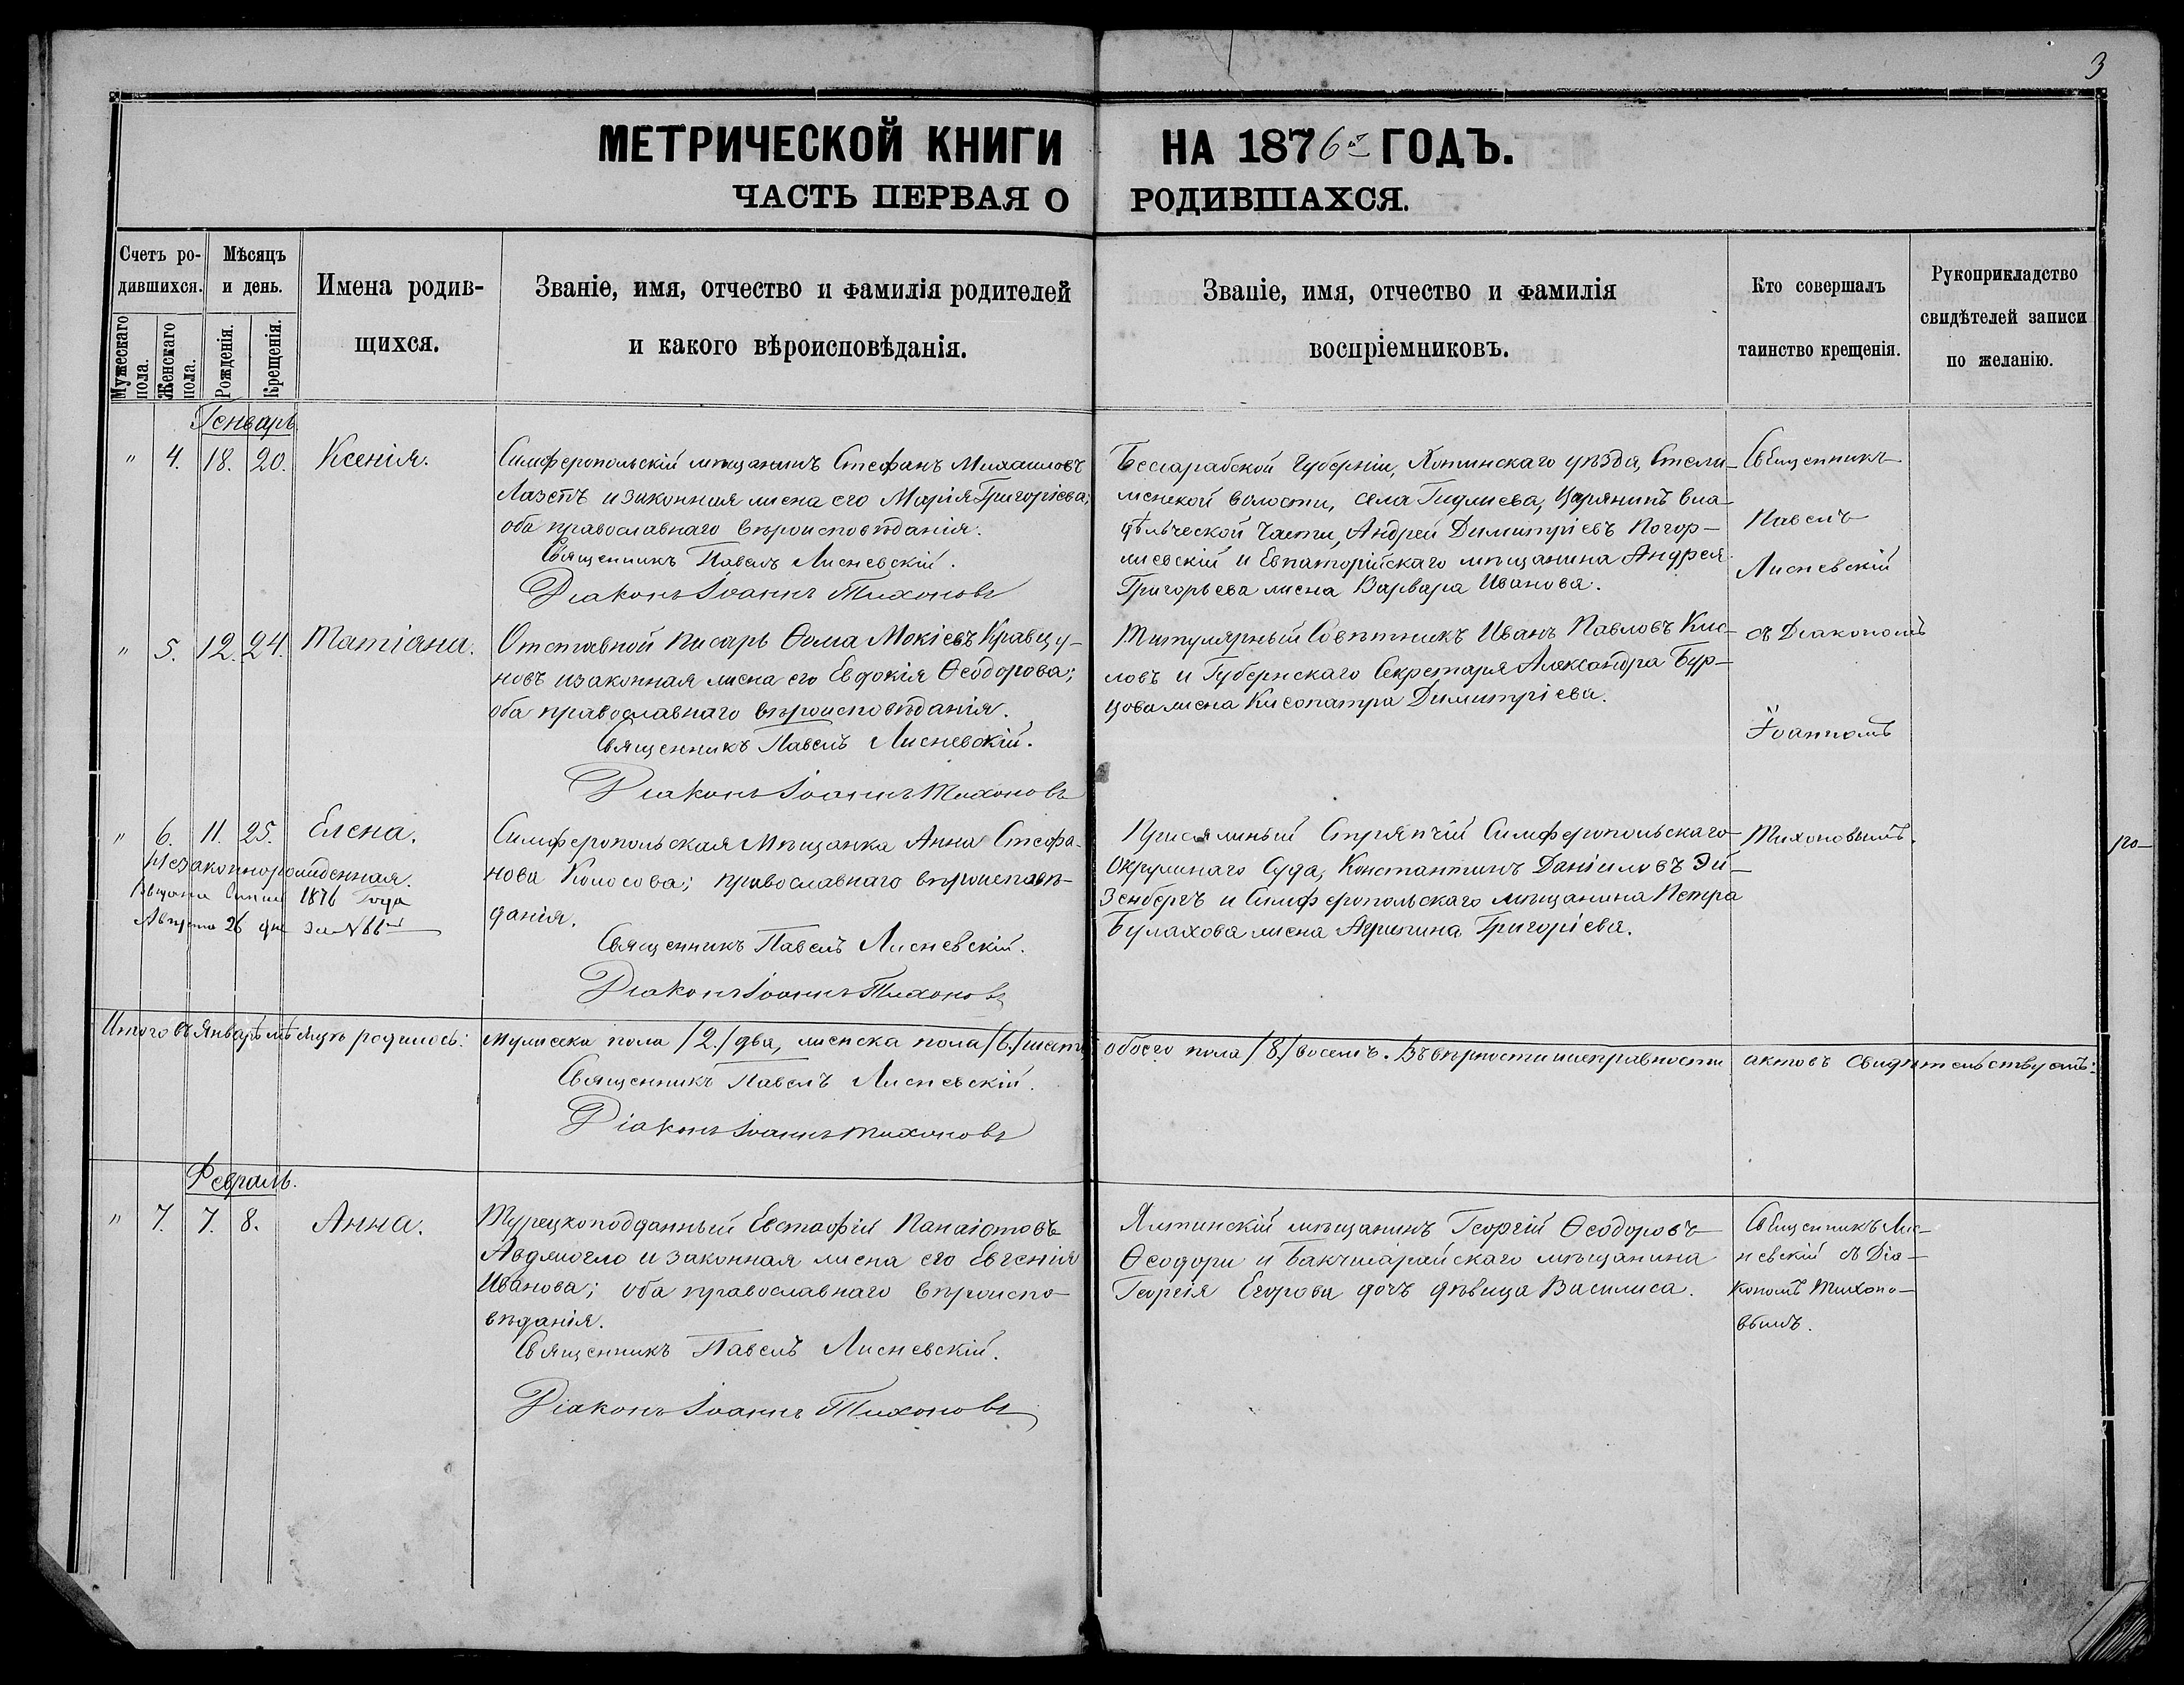 3
МЕТРИЧЕСКОЙ КНИГИ НА 1876й ГОДЪ.
ЧАСТЬ ПЕРВАЯ О РОДИВШАХСЯ.
Счетъ ро-
дившихся.
Мужескаго пола.
Женскаго пола.
Мѣсяцъ
и день.
Рожденія.
Крещенія.
Имена родив-
щихся.
Званіе, имя, отчество и фамилія родителей
и какого вѣроисповѣданія.
Званіе, имя, отчество и фамилія
воспріемниковъ.
Кто совершалъ
таинство крещенія.
Рукоприкладство
свидѣтелей записи
по желанію.
Генварь
" 4. 18. 20. Ксенія.
Симферопольскій мѣщанинъ Стефанъ Михаиловъ
Лазетъ и законная жена его Марія Григоріева;
оба православнаго вѣроисповѣданія.
Священникъ Павелъ Лисневскій.
Діаконъ Іоаннъ Тихоновъ
Бессарабской Губерніи, Хотинскаго уѣзда, Стели-
менской волости, села Гиджева, Царянинъ вла-
дѣльческой части, Андрей Димитріевъ Погор-
жевскій и Евпаторійскаго мѣщанина Андрея
Григорьева жена Варвара Иванова.
Священникъ
Павелъ
Лисневскій
" 5. 12. 24. Татіана.
Отставной писарь Ѳома Мокіевъ Кравцу-
новъ и законная жена его Евдокія Ѳеодорова;
оба православнаго вѣроисповѣданія.
Священникъ Павелъ Лисневскій.
Діаконъ Іоаннъ Тихоновъ
Титулярный Совѣтникъ Иванъ Павловъ Кис-
ловъ и Губернскаго Секретаря Александра Бур-
цова жена Клеопатра Димитріева.
съ Діакономъ
Іоанномъ
" 6. 11. 25. Елена.
Незаконнорожденная.
1876 Года
26 дня за № 66м
Симферопольская Мѣщанка Анна Стефа-
нова Колосова; православнаго вѣроисповѣ-
данія.
Священникъ Павелъ Лисневскій.
Діаконъ Іоаннъ Тихоновъ
Присяжный Стряпчій Симферопольскаго
Окружнаго Суда, Константинъ Даніиловъ Эй-
зенбергъ и Симферопольскаго мѣщанина Петра
Булахова жена Агрипина Григоріева.
Тихоновымъ.
Итого въ Январѣ мѣсяцѣ родилось: мужеска пола /2./ два, женска пола /6./ шесть
обоего пола /8./ восемь. Въ вѣрности и исправности актовъ свидѣтельствуемъ:
Священникъ Павелъ Лисневскій.
Діаконъ Іоаннъ Тихоновъ
Февраль.
" 7. 7. 8. Анна.
Турецкоподданный Евстафій Панаіотовъ
Авджіогло и законная жена его Евгенія
Иванова; оба православнаго вѣроиспо-
вѣданія.
Священникъ Павелъ Лисневскій.
Діаконъ Іоаннъ Тихоновъ
Ялтинскій мѣщанинъ Георгій Ѳеодоровъ
Ѳеодори и Бакчисарайскаго мѣщанина
Георгія Егорова дочь дѣвица Василиса.
Священникъ Лис-
невскій съ Діа-
кономъ Тихоно-
вымъ.